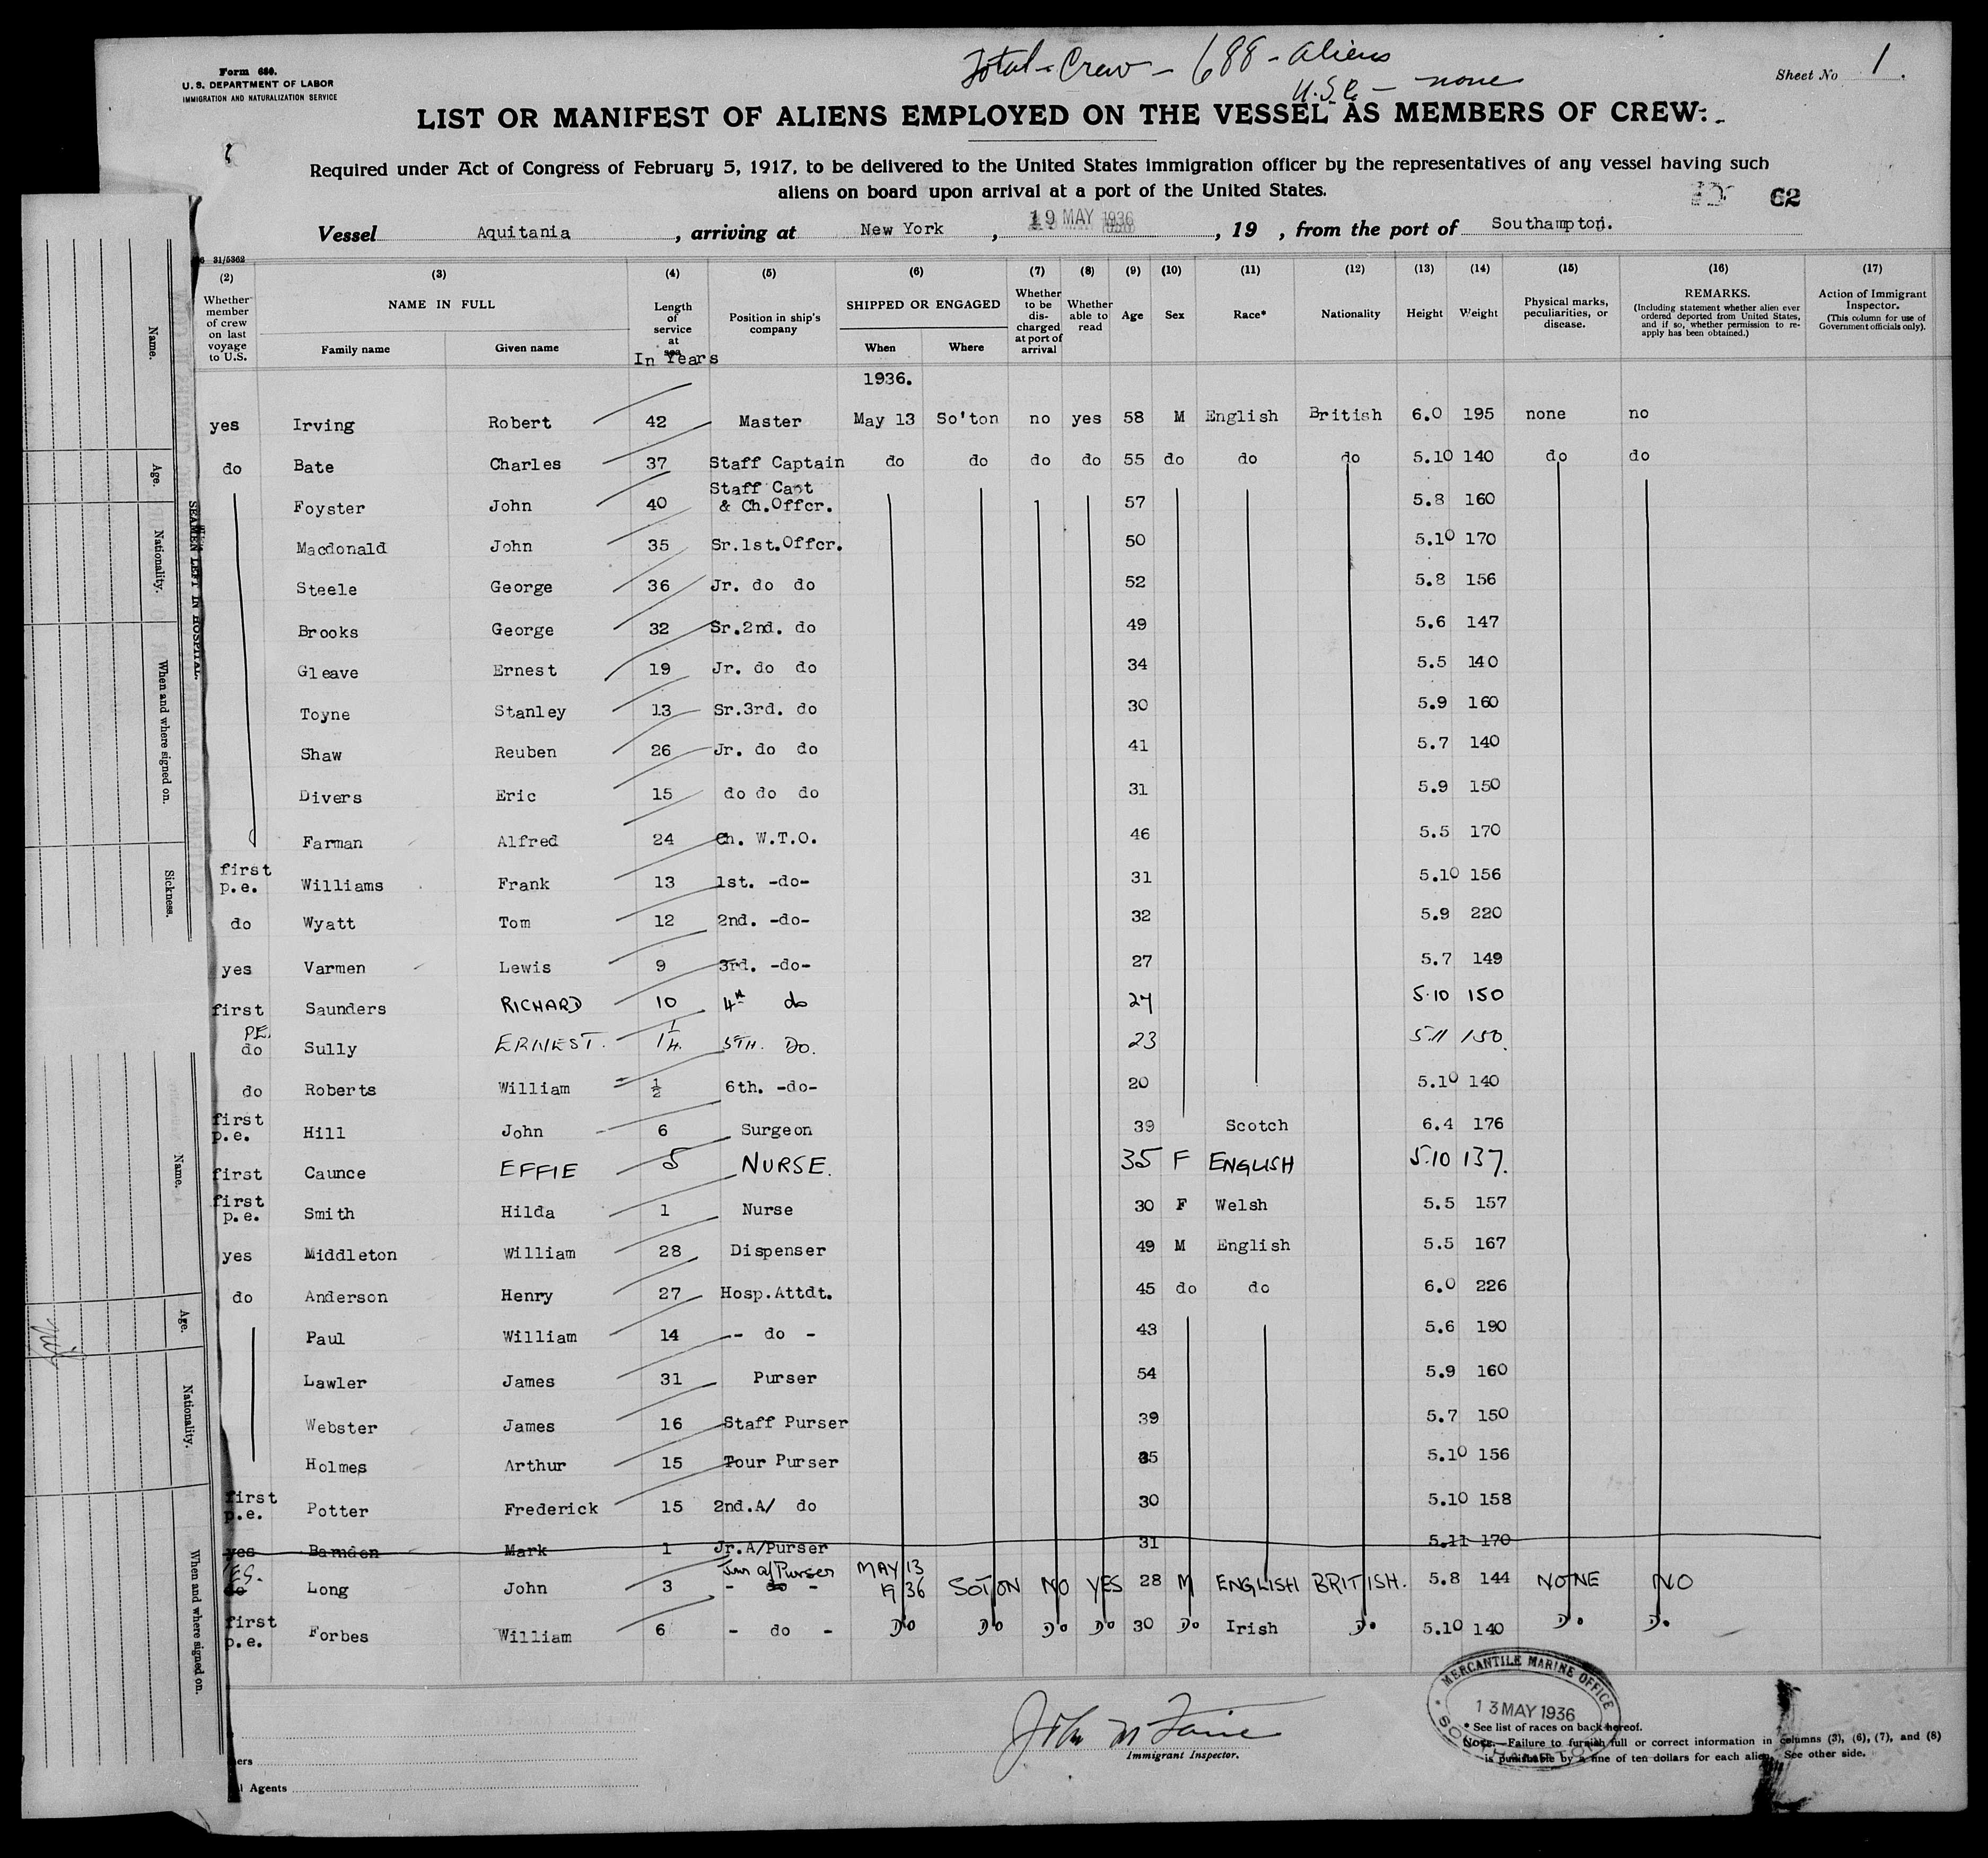 Total - Crew - 688 - aliens
U.S.C. - none
Form 680.
U. S. DEPARTMENT OF LABOR
IMMIGRATION AND NATURALIZATION SERVICE
Sheet No 1.
LIST OR MANIFEST OF ALIENS EMPLOYED ON THE VESSEL AS MEMBERS OF CREW:-
Required under Act of Congress of February 5, 1917, to be delivered to the United States immigration officer by the representatives of any vessel having such
aliens on board upon arrival at a port of the United States.
62
Vessel Aquitania, arriving at New York, 19 MAY 1936, 19 , from the port of Southampton.
(2) (3) (4) (5) (6) (7) (8) (9) (10) (11) (12) (13) (14) (15) (16) (17)
Whether member of crew on last voyage to U.S.
NAME IN FULL
Family name Given name
Length of service at sea
In Years
Position in ship's company
SHIPPED OR ENGAGED
When Where
Whether to be discharged at port of arrival
Whether able to read
Age Sex Race* Nationality Height Weight
Physical marks, peculiarities, or disease.
REMARKS.
(Including statement whether alien ever ordered deported from United States, and if so, whether permission to reapply has been obtained.)
Action of Immigrant Inspector.
(This column for use of Government officials only).
1936.
yes Irving Robert 42 Master May 13 So'ton no yes 58 M English British 6.0 195 none no
do Bate Charles 37 Staff Captain do do do do 55 do do do 5.10 140 do do
Foyster John 40 Staff Capt & Ch.Offcr. 57 5.8 160
Macdonald John 35 Sr.1st.Offcr. 50 5.10 170
Steele George 36 Jr. do do 52 5.8 156
Brooks George 32 Sr.2nd. do 49 5.6 147
Gleave Ernest 19 Jr. do do 34 5.5 140
Toyne Stanley 13 Sr.3rd. do 30 5.9 160
Shaw Reuben 26 Jr. do do 41 5.7 140
Divers Eric 15 do do do 31 5.9 150
Farman Alfred 24 Ch. W.T.O. 46 5.5 170
first p.e. Williams Frank 13 1st. -do- 31 5.10 156
do Wyatt Tom 12 2nd. -do- 32 5.9 220
yes Varmen Lewis 9 3rd. -do- 27 5.7 149
first Saunders RICHARD 10 4th do 27 5.10 150
P.E. do Sully ERNEST. 1 1/4. 5TH. DO. 23 5.11 150.
do Roberts William 1/2 6th. -do- 20 5.10 140
first p.e. Hill John 6 Surgeon 39 Scotch 6.4 176
first Caunce EFFIE 5 NURSE. 35 F ENGLISH 5.10 137.
first p.e. Smith Hilda 1 Nurse 30 F Welsh 5.5 157
yes Middleton William 28 Dispenser 49 M English 5.5 167
do Anderson Henry 27 Hosp.Attdt. 45 do do 6.0 226
Paul William 14 - do - 43 5.6 190
Lawler James 31 Purser 54 5.9 160
Webster James 16 Staff Purser 39 5.7 150
Holmes Arthur 15 Tour Purser 35 5.10 156
first p.e. Potter Frederick 15 2nd.A/ do 30 5.10 158
yes Barnden Mark 1 Jr.A/Purser 31 5.11 170
YES. do Long John 3 Junr a/Purser - do - MAY 13 1936 SOTON NO YES 28 M ENGLISH BRITISH. 5.8 144 NONE NO
first p.e. Forbes William 6 - do - Do Do Do Do 30 Do Irish Do 5.10 140 Do Do
Immigrant Inspector.
MERCANTILE MARINE OFFICE
13 MAY 1936
SOUTHAMPTON
* See list of races on back hereof.
NOTE.—Failure to furnish full or correct information in columns (3), (6), (7), and (8)
is punishable by a fine of ten dollars for each alien. See other side.
ers
l Agents
31/5362
SEAMEN LEFT IN HOSPITAL.
Name.
Age.
Nationality.
When and where signed on.
Sickness.
Name.
Age.
Nationality.
When and where signed on.